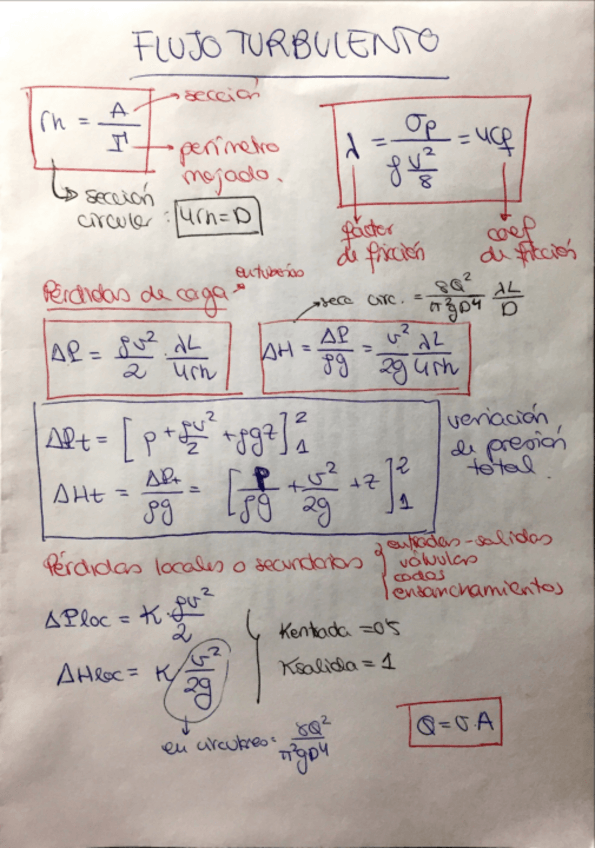 FLUJO TURBULENTO
rh = A/Γ
sección
perímetro
mojado.
sección
circular: 4rh=D
λ = σp / (ρ v²/8) = 4cf
factor
de fricción
coef
de fricción
Pérdidas de carga
en tuberías
secc circ. = 8Q²/π²gD⁴ λL/D
ΔP = ρv²/2 · λL/4rh
ΔH = ΔP/ρg = v²/2g λL/4rh
ΔPt = [p + ρv²/2 + ρgz]²₁
ΔHt = ΔPt/ρg = [P/ρg + v²/2g + z]²₁
variación
de presión
total.
Pérdidas locales o secundarias
entradas-salidas
válvulas
codos
ensanchamientos
ΔPloc = K·ρv²/2
ΔHloc = K v²/2g
Kentrada = 05
Ksalida = 1
en circulares: 8Q²/π²gD⁴
Q = v·A